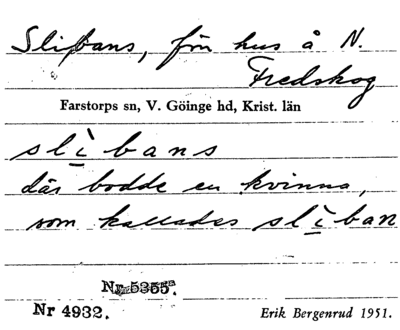 Slibans, fön hus å N.
Fredskog
Farstorps sn, V. Göinge hd, Krist. län
slìbans
där bodde en kvinna,
som kallades slìban
Nr 5355.
Nr 4932.
Erik Bergenrud 1951.